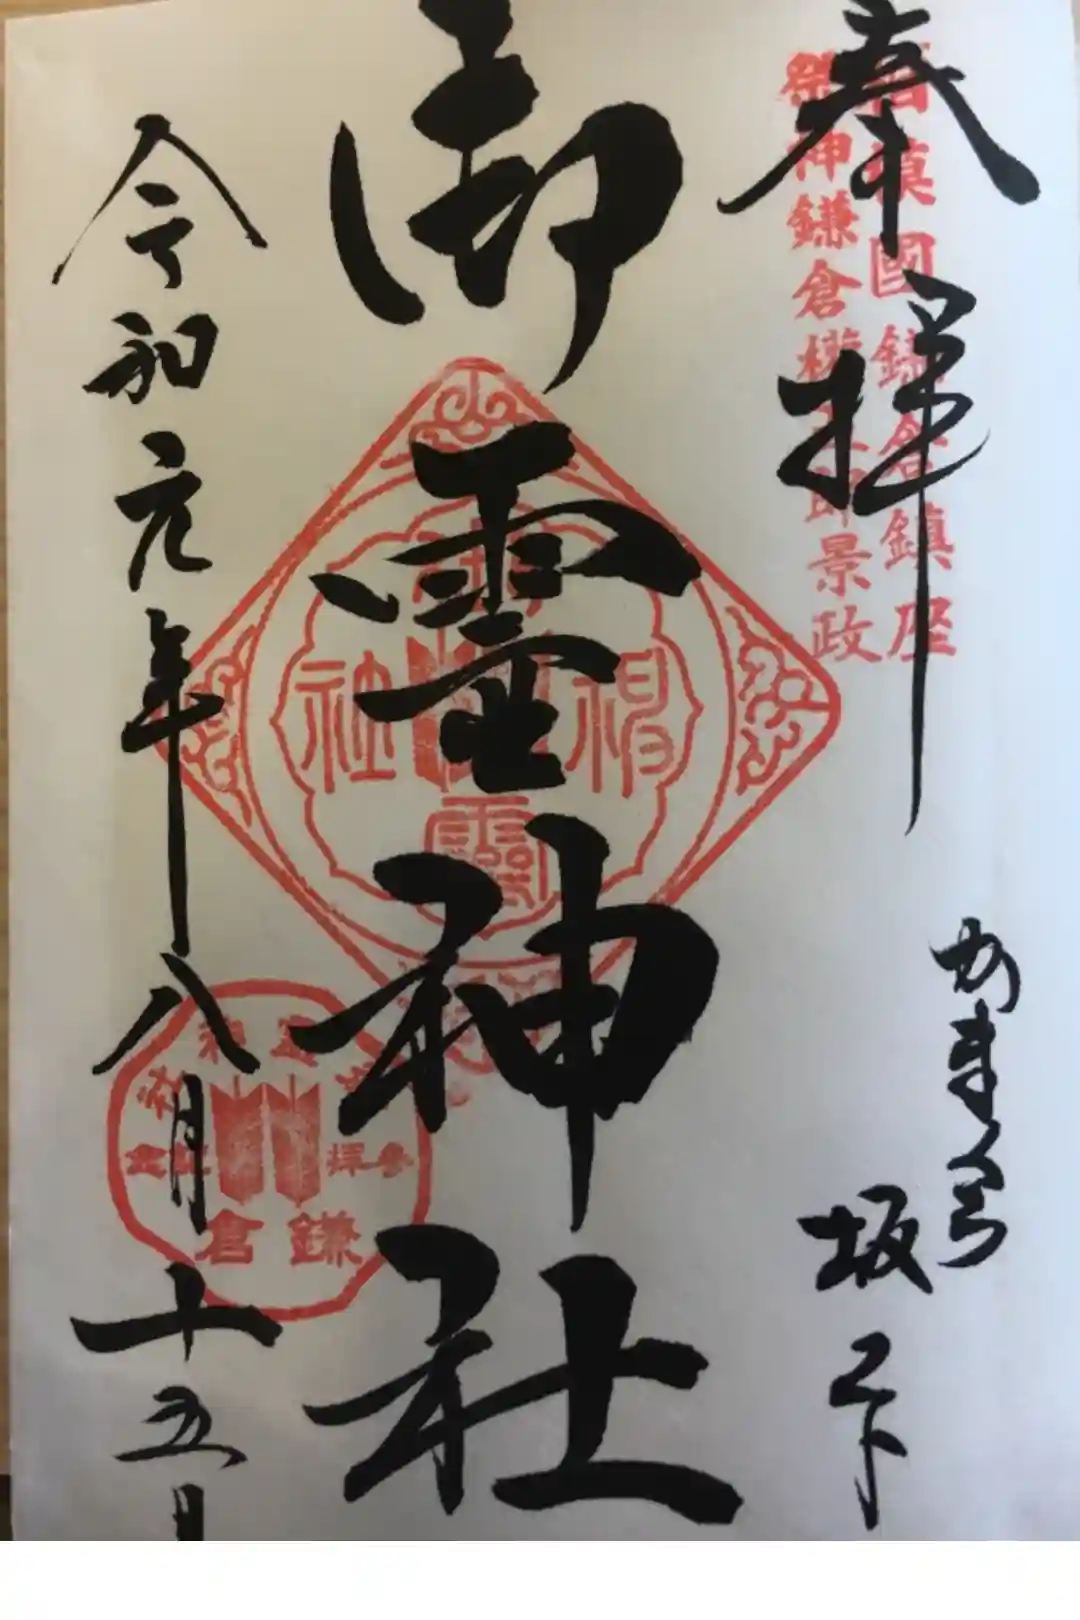 奉拝
相模國鎌倉鎮座
祭神鎌倉権五郎景政
かまくら
坂ノ下
御霊神社
令和元年八月十五日
御靈神社
鎌倉
参拝